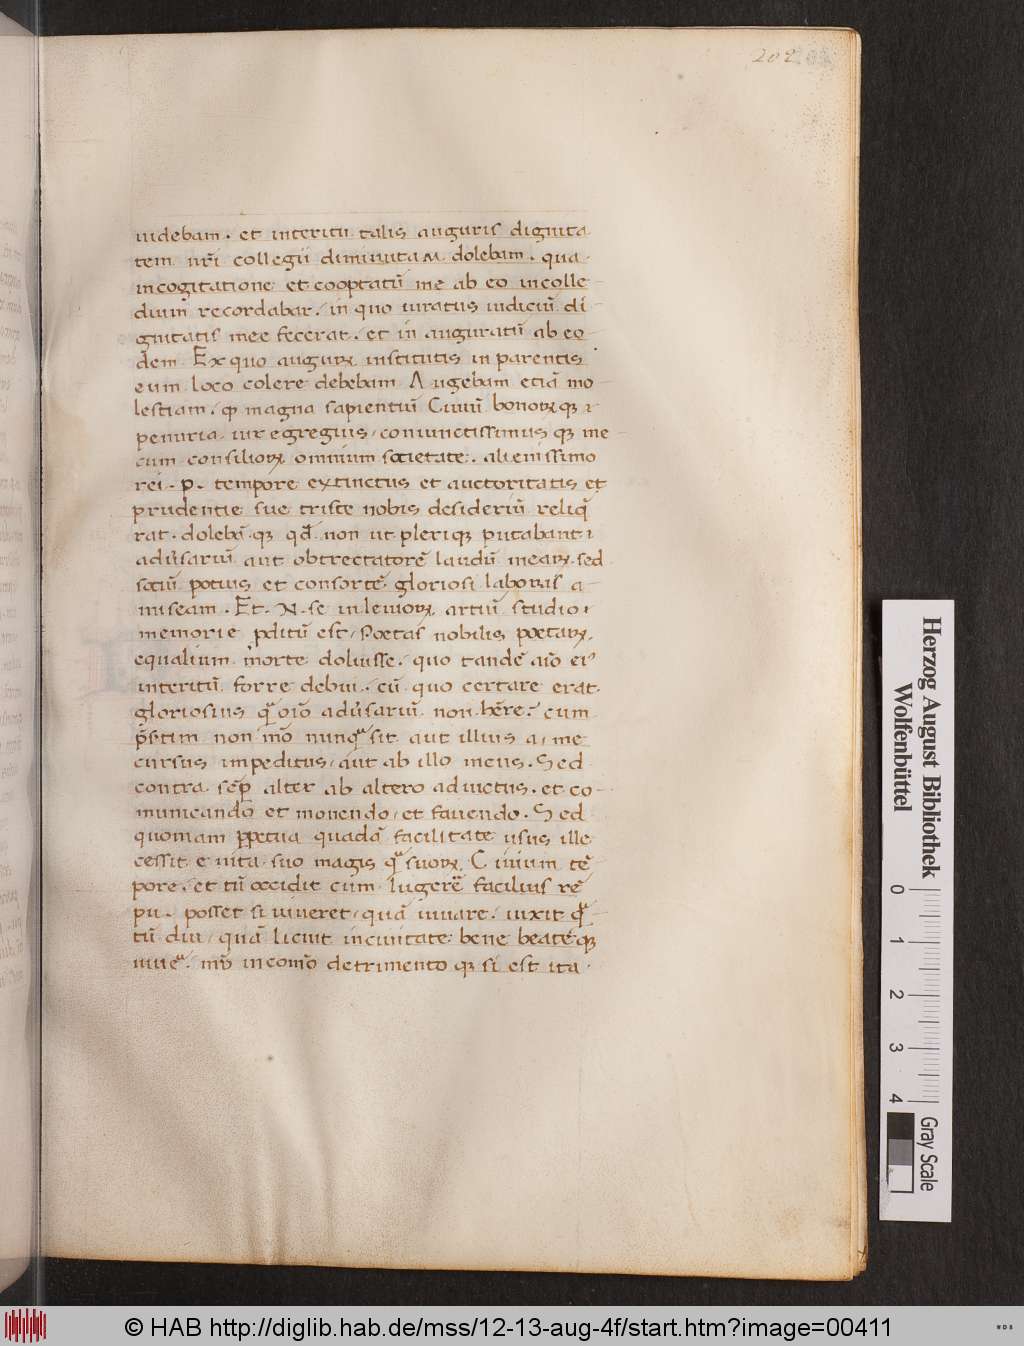 202
uidebam. et interitu talis auguris dignita
tem nr̄i collegii diminutam dolebam. qua
incogitatione et cooptatū me ab eo incolle
dium̄ recordabar. in quo iuratus iudiciū di
gnitatis mee fecerat. et in auguratū ab eo
dem. Ex quo auguꝝ institutis in parentis
eum loco colere debebam Augebam etiā mo
lestiam. ꝙ magna sapientiū Ciuiū bonoꝝ qꝫ
penuria. uir egregius, coniunctissimus qꝫ me
cum consilioꝝ omnium societate. alienissimo
rei. p. tempore extinctus et auctoritatis et
prudentie sue triste nobis desideriū reliq̄
rat. dolebā qꝫ qd̄ non ut pleriqꝫ putabant
adūsariū aut obtrectatorē laudū mearꝝ. sed
sociū potius et consortē gloriosi laboris a
miseam. Et .N. se in leuioꝝ artiū studio
memorie pditū est, Poetas nobilis poetarꝝ.
equalium morte doluisse. quo tandē aīo eiꝰ
interitū ferre debui. cū quo certare erat.
gloriosius qͣ oīo adūsariū non hēre? cum
p̄stim non mō nunqͣ sit aut illius a, me
cursus impeditus, aut ab illo meus. Sed
contra. sēp alter ab altero adiutus. et co
municando et monendo, et fauendo. Sed
quoniam ꝑpetua quadā facilitate usus ille
cessit e uita. suo magis qͣ suoꝝ. Ciuium tē
pore. et tū occidit cum lugerē facilius rē
pu. posset si uiueret, quā iuuare. uixit qͣ
tū diu, quā licuit inciuitate bene beateqꝫ
uiueͣ. nr̄o incomō detrimento qꝫ si est ita.
Herzog August Bibliothek
Wolfenbüttel
0 1 2 3 4
Gray Scale
© HAB http://diglib.hab.de/mss/12-13-aug-4f/start.htm?image=00411